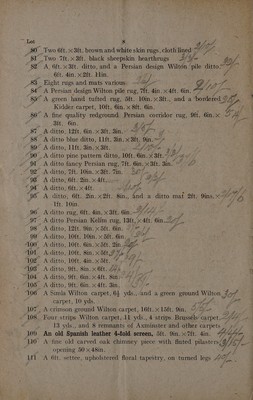 Lot 8
80 Two 6ft. × 3ft. brown and white skin rugs, cloth lined
81 Two 7ft. × 3ft. black sheepskin hearthrugs
82 A 6ft. × 3ft. ditto, and a Persian design Wilton pile ditto,
6ft. 4in. × 2ft. 11in.
83 Eight rugs and mats various
84 A Persian design Wilton pile rug, 7ft. 4in. × 4ft. 6in.
85 A green hand tufted rug, 5ft. 10in. × 3ft., and a bordered
Kidder carpet, 10ft. 6in. × 8ft. 6in.
86 A fine quality redground Persian corridor rug, 9ft. 6in. ×
3ft. 6in.
87 A ditto, 12ft. 6in. × 3ft. 3in.
88 A ditto blue ditto, 11ft. 3in. × 3ft. 9in.
89 A ditto, 11ft. 3in. × 3ft.
90 A ditto pine pattern ditto, 10ft. 6in. × 3ft.
91 A ditto fancy Persian rug, 7ft. 6in. × 3ft. 3in.
92 A ditto, 7ft. 10in. × 3ft. 7in.
93 A ditto, 6ft. 2in. × 4ft.
94 A ditto, 6ft. × 4ft.
95 A ditto, 6ft. 2in. × 2ft. 8in., and a ditto mat 2ft. 9in. ×
1ft. 10in.
96 A ditto rug, 6ft. 4in. × 3ft. 6in.
97 A ditto Persian Kelim rug, 13ft. × 4ft. 6in.
98 A ditto, 12ft. 8in. × 5ft. 6in.
99 A ditto, 10ft. 10in. × 5ft. 6in.
100 A ditto, 10ft. 6in. × 5ft. 2in.
101 A ditto, 10ft. 8in. ×
102 A ditto, 10ft. 4in. × 5ft.
103 A ditto, 9ft. 8in. × 6ft.
104 A ditto, 9ft. 6in. × 4ft. 8in.
105 A ditto, 9ft. 6in. × 4ft. 3in.
106 A Sonia Wilton carpet, 6½ yds., and a green ground Wilton
carpet, 10 yds.
107 A crimson ground Wilton carpet, 16ft. × 15ft. 9in.
108 Four strips Wilton carpet, 11 yds., 4 strips Brussels carpet,
13 yds., and 8 remnants of Axminster and other carpets
109 An old Spanish leather 4-fold screen, 5ft. 9in. × 7ft. 4in.
110 A fine old carved oak chimney piece with fluted pilasters,
opening 50 × 48in.
111 A 6ft. settee, upholstered floral tapestry, on turned legs